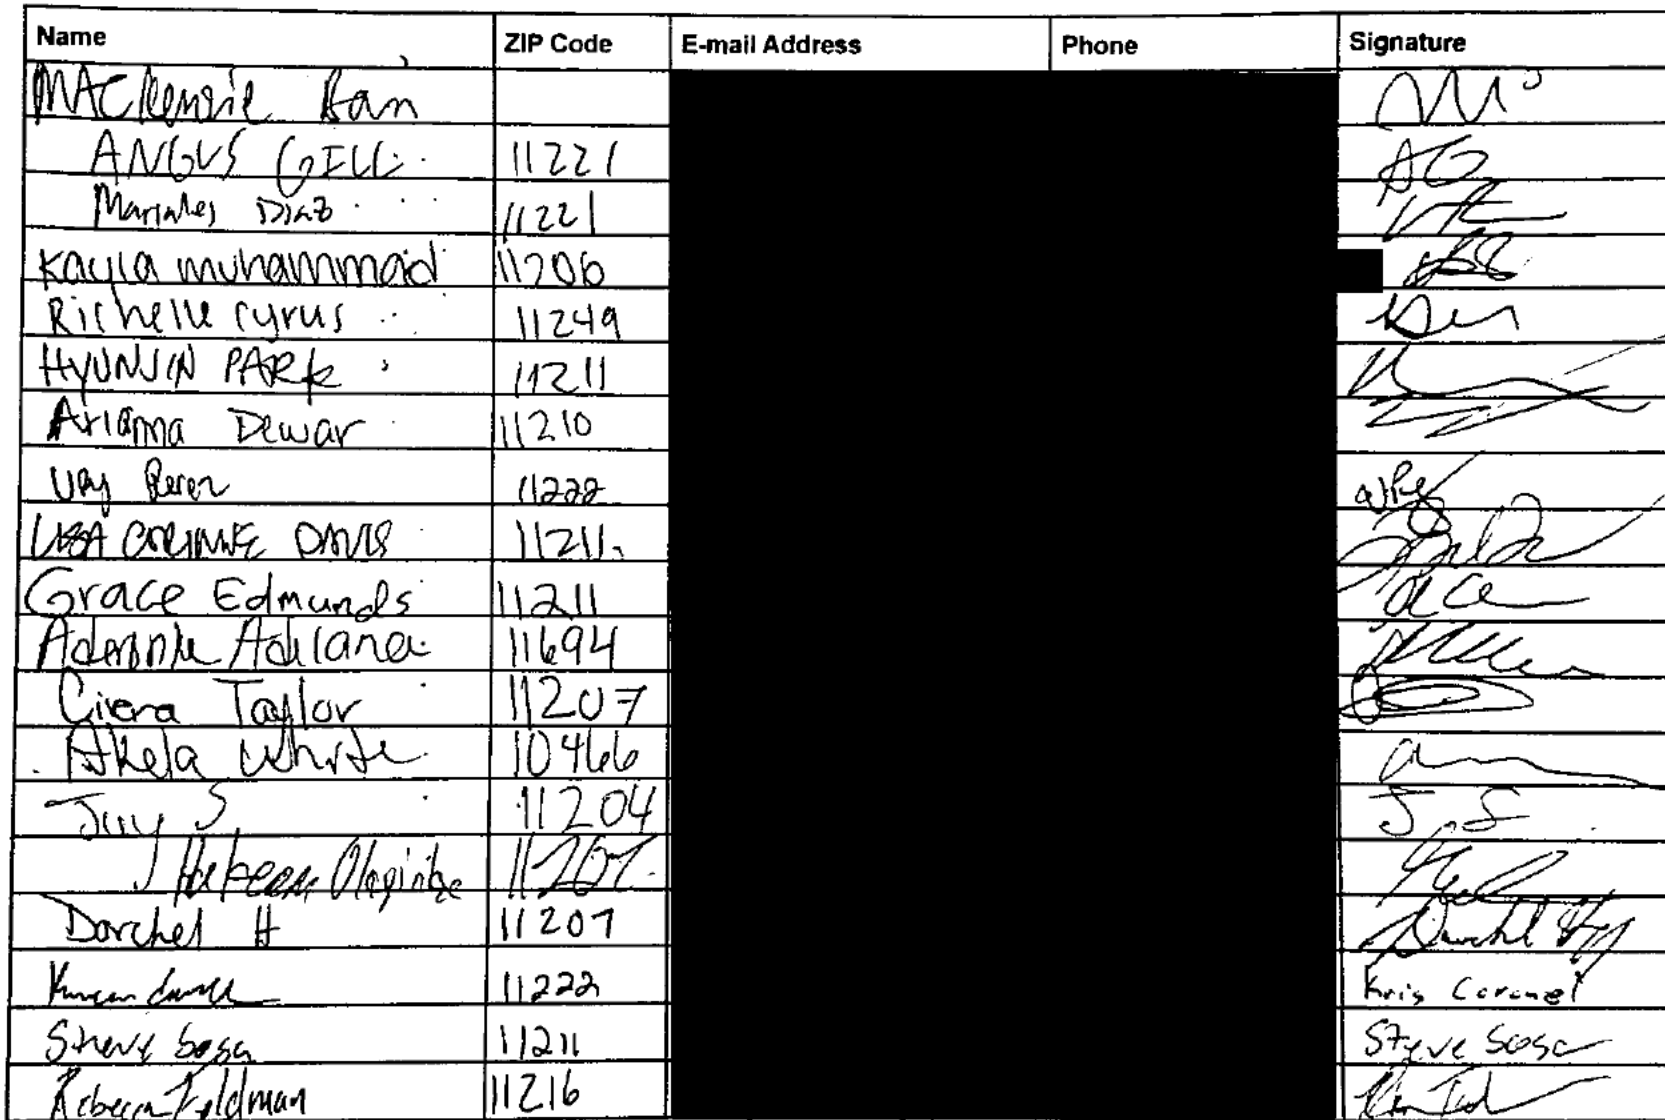 Name ZIP Code E-mail Address Phone Signature
MACKenzie
ANGUS GILL 11221 AG
Diaz 11221
Kayla muhammad 11206
Richelle cyrus 11249
HYUNJIN PARK 11211
Arianna Dewar 11210
Perez 11222
LISA CORINNE DAVIS 11211
Grace Edmunds 11211
11694
Ciera Taylor 11207
Akela White 10466
S 11204 J S
Hakeem 11207
Darchel H 11207
11222 Kris Coronel
Steve Sosa 11211 Steve Sosa
Rebecca Feldman 11216